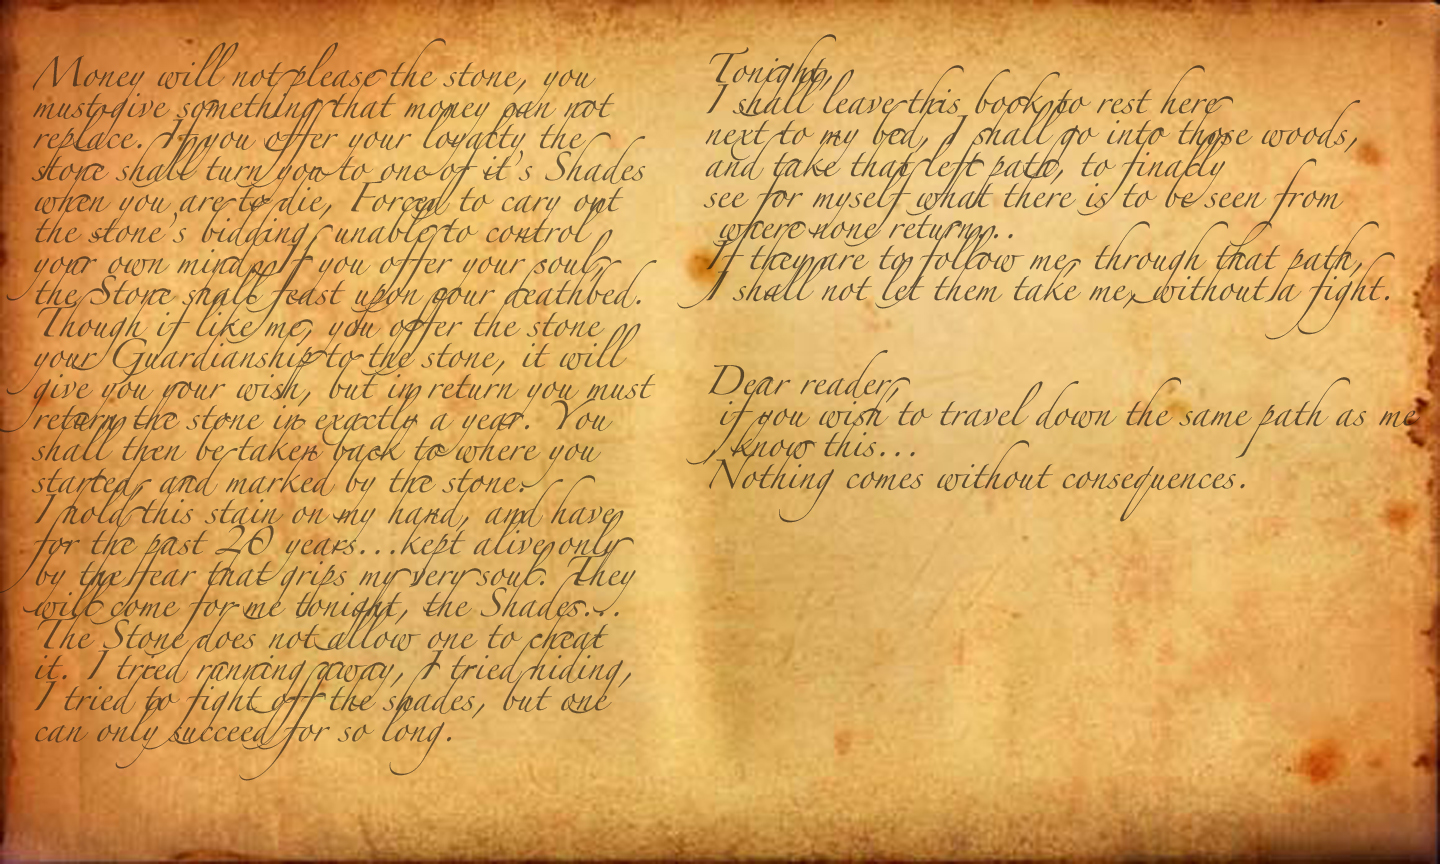 Money will not please the stone, you
must give something that money can not
replace. If you offer your loyalty the
stone shall turn you to one of it's Shades
when you are to die, Forced to cary out
the stone's bidding, unable to control
your own mind. If you offer your soul,
the Stone shall feast upon your deathbed.
Though if like me, you offer the stone
your Guardianship to the stone, it will
give you your wish, but in return you must
return the stone in exactly a year. You
shall then be taken back to where you
started, and marked by the stone.
I hold this stain on my hand, and have
for the past 20 years...kept alive only
by the fear that grips my very soul. They
will come for me tonight, the Shades...
The Stone does not allow one to cheat
it. I tried running away, I tried hiding,
I tried to fight off the shades, but one
can only succeed for so long.
Tonight,
I shall leave this book to rest here
next to my bed, I shall go into those woods,
and take that left path, to finally
see for myself what there is to be seen from
where none return...
If they are to follow me, through that path,
I shall not let them take me, without a fight.
Dear reader,
if you wish to travel down the same path as me
, know this...
Nothing comes without consequences.